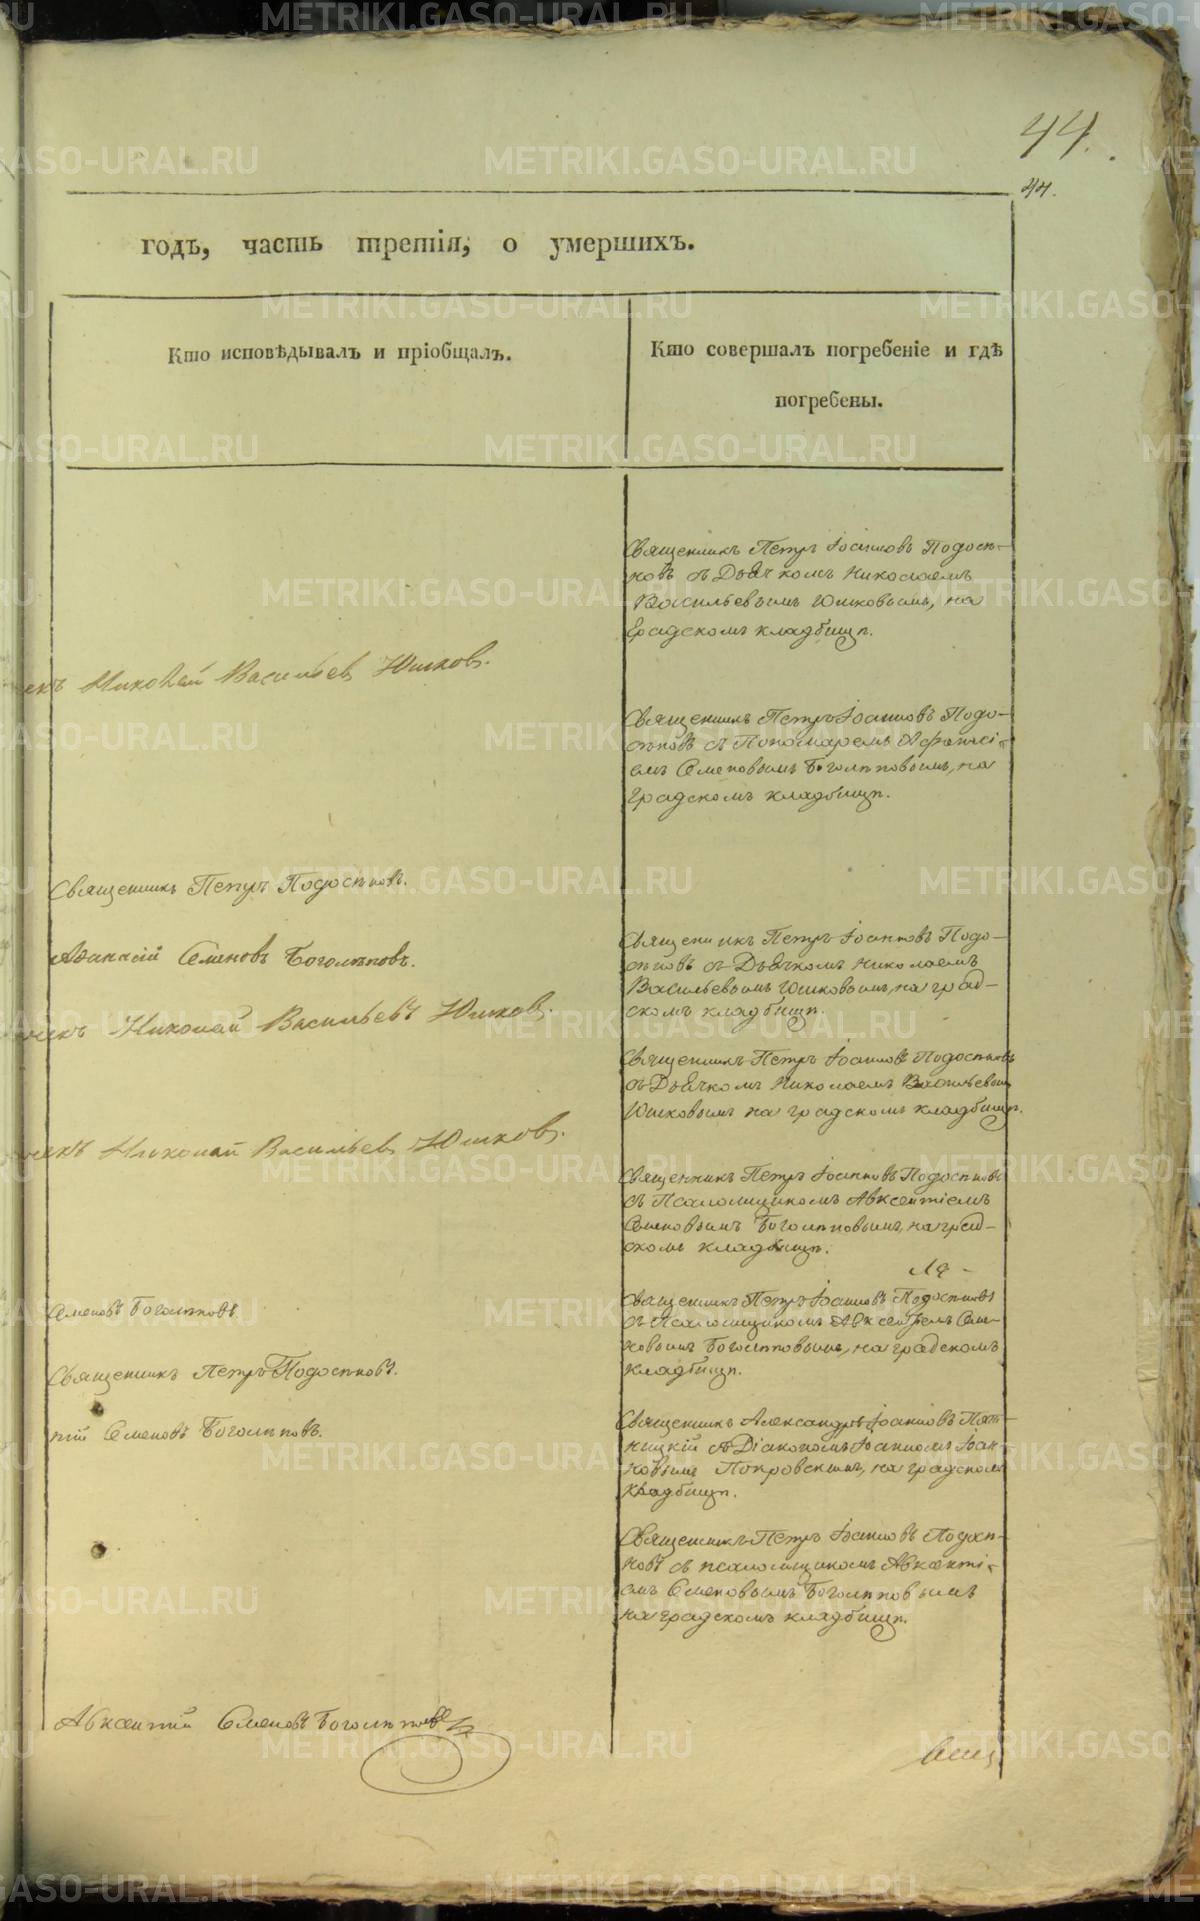 44.
44.
годъ, часть третія, о умершихъ.
Кто исповѣдывалъ и пріобщалъ.
Кто совершалъ погребеніе и гдѣ
погребены.
Священникъ Петръ Іоанновъ Подосѣ-
новъ съ Дьячкомъ Николаемъ
Васильевымъ Юшковымъ, на
Градскомъ кладбищѣ.
Николай Васильевъ Юшковъ.
Священникъ Петръ Іоанновъ Подо-
сѣновъ съ Пономаремъ Афанасі-
емъ Семеновымъ Боголѣповымъ, на
Градскомъ кладбищѣ.
Священникъ Петръ Подосѣновъ.
Аѳанасій Семеновъ Боголѣповъ.
Священникъ Петръ Іоанновъ Подо-
сѣновъ съ Дьячкомъ Николаемъ
Васильевымъ Юшковымъ, на град-
скомъ кладбищѣ.
Николай Васильевъ Юшковъ.
Священникъ Петръ Іоанновъ Подосѣновъ
съ Дьячкомъ Николаемъ Васильевымъ
Юшковымъ на градскомъ кладбищѣ.
Николай Васильевъ Юшковъ.
Священникъ Петръ Іоанновъ Подосѣновъ
съ Псаломщикомъ Авксентіемъ
Семеновымъ Боголѣповымъ, на град-
скомъ кладбищѣ.
Семеновъ Боголѣповъ
Священникъ Петръ Іоанновъ Подосѣновъ
съ Псаломщикомъ Авксентіемъ Семе-
новымъ Боголѣповымъ, на градскомъ
кладбищѣ.
Священникъ Петръ Подосѣновъ.
тій Семеновъ Боголѣповъ.
Священникъ Александръ Іоанновъ Пят-
ницкій съ Діакономъ Іоанномъ Іоан-
новымъ Покровскимъ, на градскомъ
кладбищѣ.
Священникъ Петръ Іоанновъ Подосѣ-
новъ съ псаломщикомъ Авксенті-
емъ Семеновымъ Боголѣповымъ
на градскомъ кладбищѣ.
Авксентій Семеновъ Боголѣповъ
METRIKI.GASO-URAL.RU